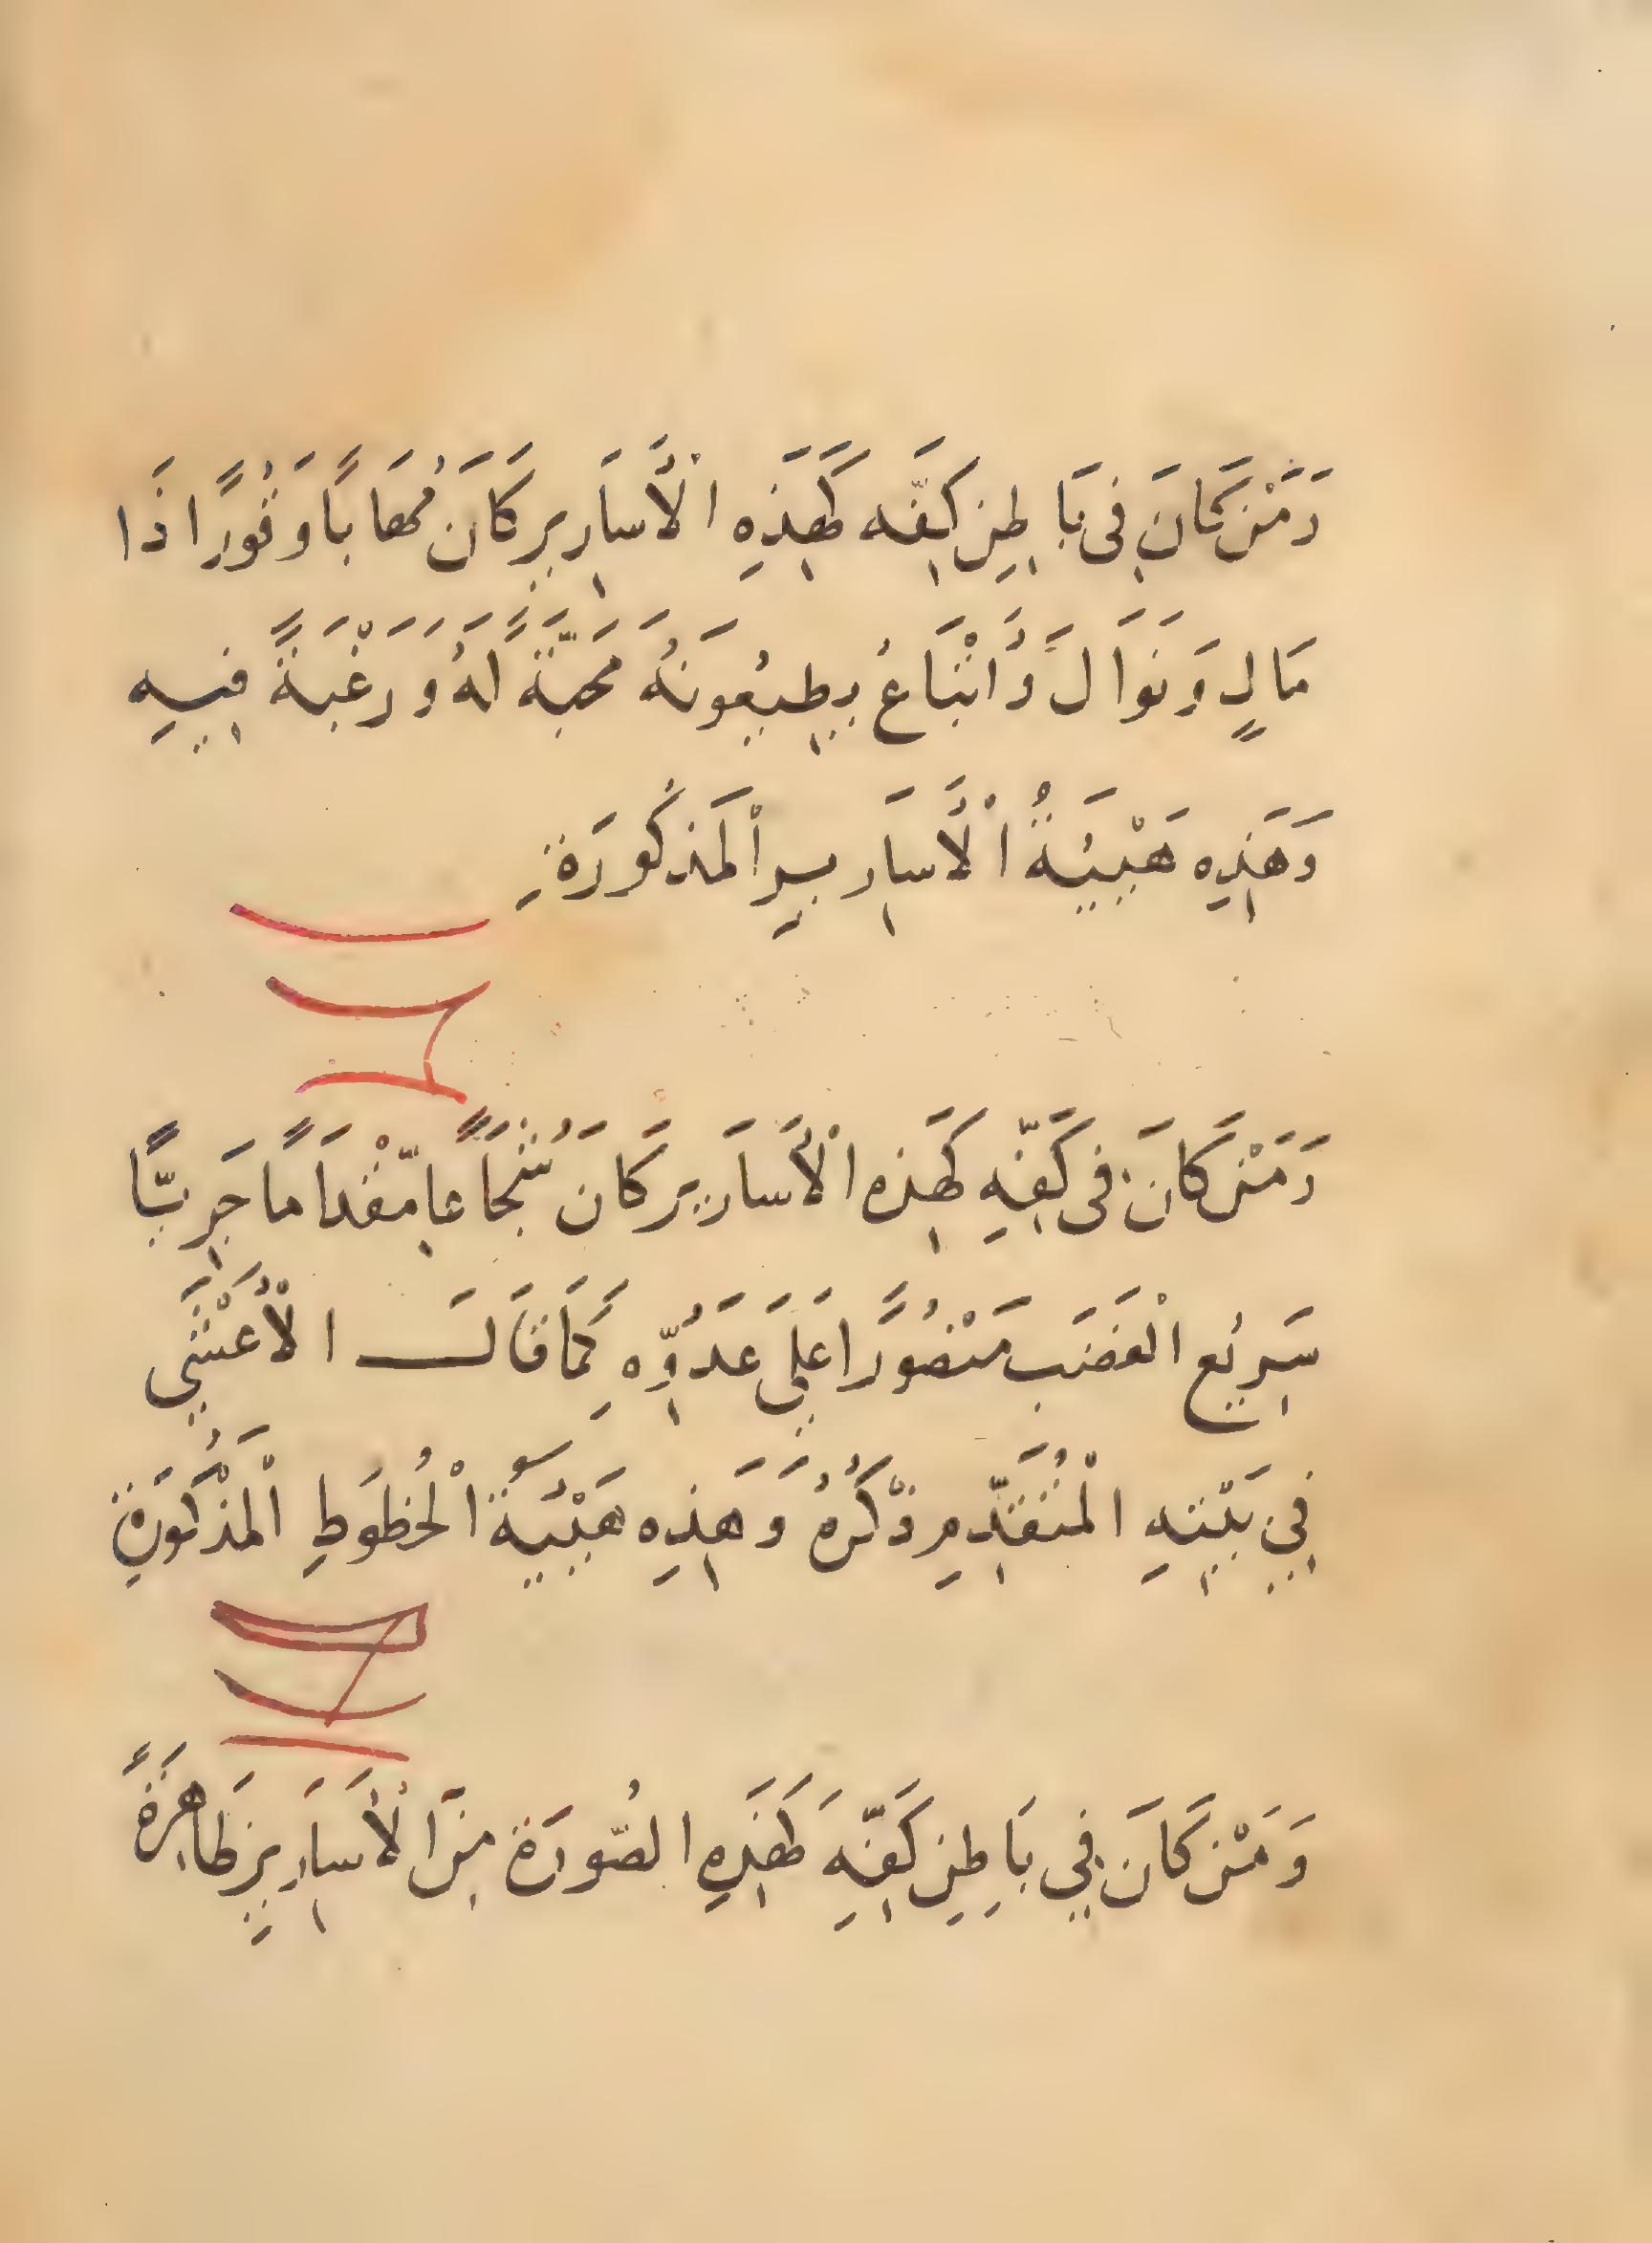 وَمَنْ كَانَ فِى بَاطِنِ كَفِّه كَهَذِهِ الْأَسَارِيرِ كَانَ مُهَابًا وَقُورًا ذَا
مَالٍ وَنَوَالَ وَّاتْبَاعُ يطِيعُونَهُ مَحَبَّةً لَهُ وَرَغْبَةً فِيهِ
وَهَذِهِ هَيْئَةُ الْأَسَارِيرِ الْمَذكُورَةِ
وَمَنْ كَانَ فِى كَفِّهِ كَهَذِه الْأَسَارِير كَانَ شُجَاعًا مِّقْدَامًا جَرِيًّا
سَرِيْع الْغَضَب مَنْصُورًا عَلَى عَدُوِّهِ كَمَا قَالَ الْأَعْشَى
فِي بَيْتِهِ الْمُتَقَدِّمِ ذْكْرُهُ وَهَذِهِ هَيْئَة الْخُطُوطِ الْمَذْكُورَةِ
وَمَنْ كَانَ فِي بَاطِنِ كَفِّهِ كَهَذِهِ الصُّورَة مِنَ الْأَسَارِيرِ ظَاهِرَةً